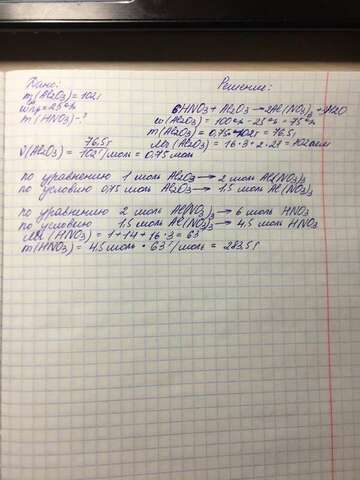 Дано:
Решение:
m(Al2O3)=102г
wпр=25%
m(HNO3)-?
6HNO3+Al2O3→2Al(NO3)3+3H2O
w(Al2O3)=100%-25%=75%
m(Al2O3)=0,75*102г=76,5г
Mr(Al2O3)=16·3+2·27=102
ν(Al2O3)=76,5г/102г/моль=0,75моль
по уравнению 1 моль Al2O3→2 моль Al(NO3)3
по условию 0,75 моль Al2O3→1,5 моль Al(NO3)3
по уравнению 2 моль Al(NO3)3→6 моль HNO3
по условию 1,5 моль Al(NO3)3→4,5 моль HNO3
Mr(HNO3)=1+14+16·3=63
m(HNO3)=4,5моль·63г/моль=283,5г